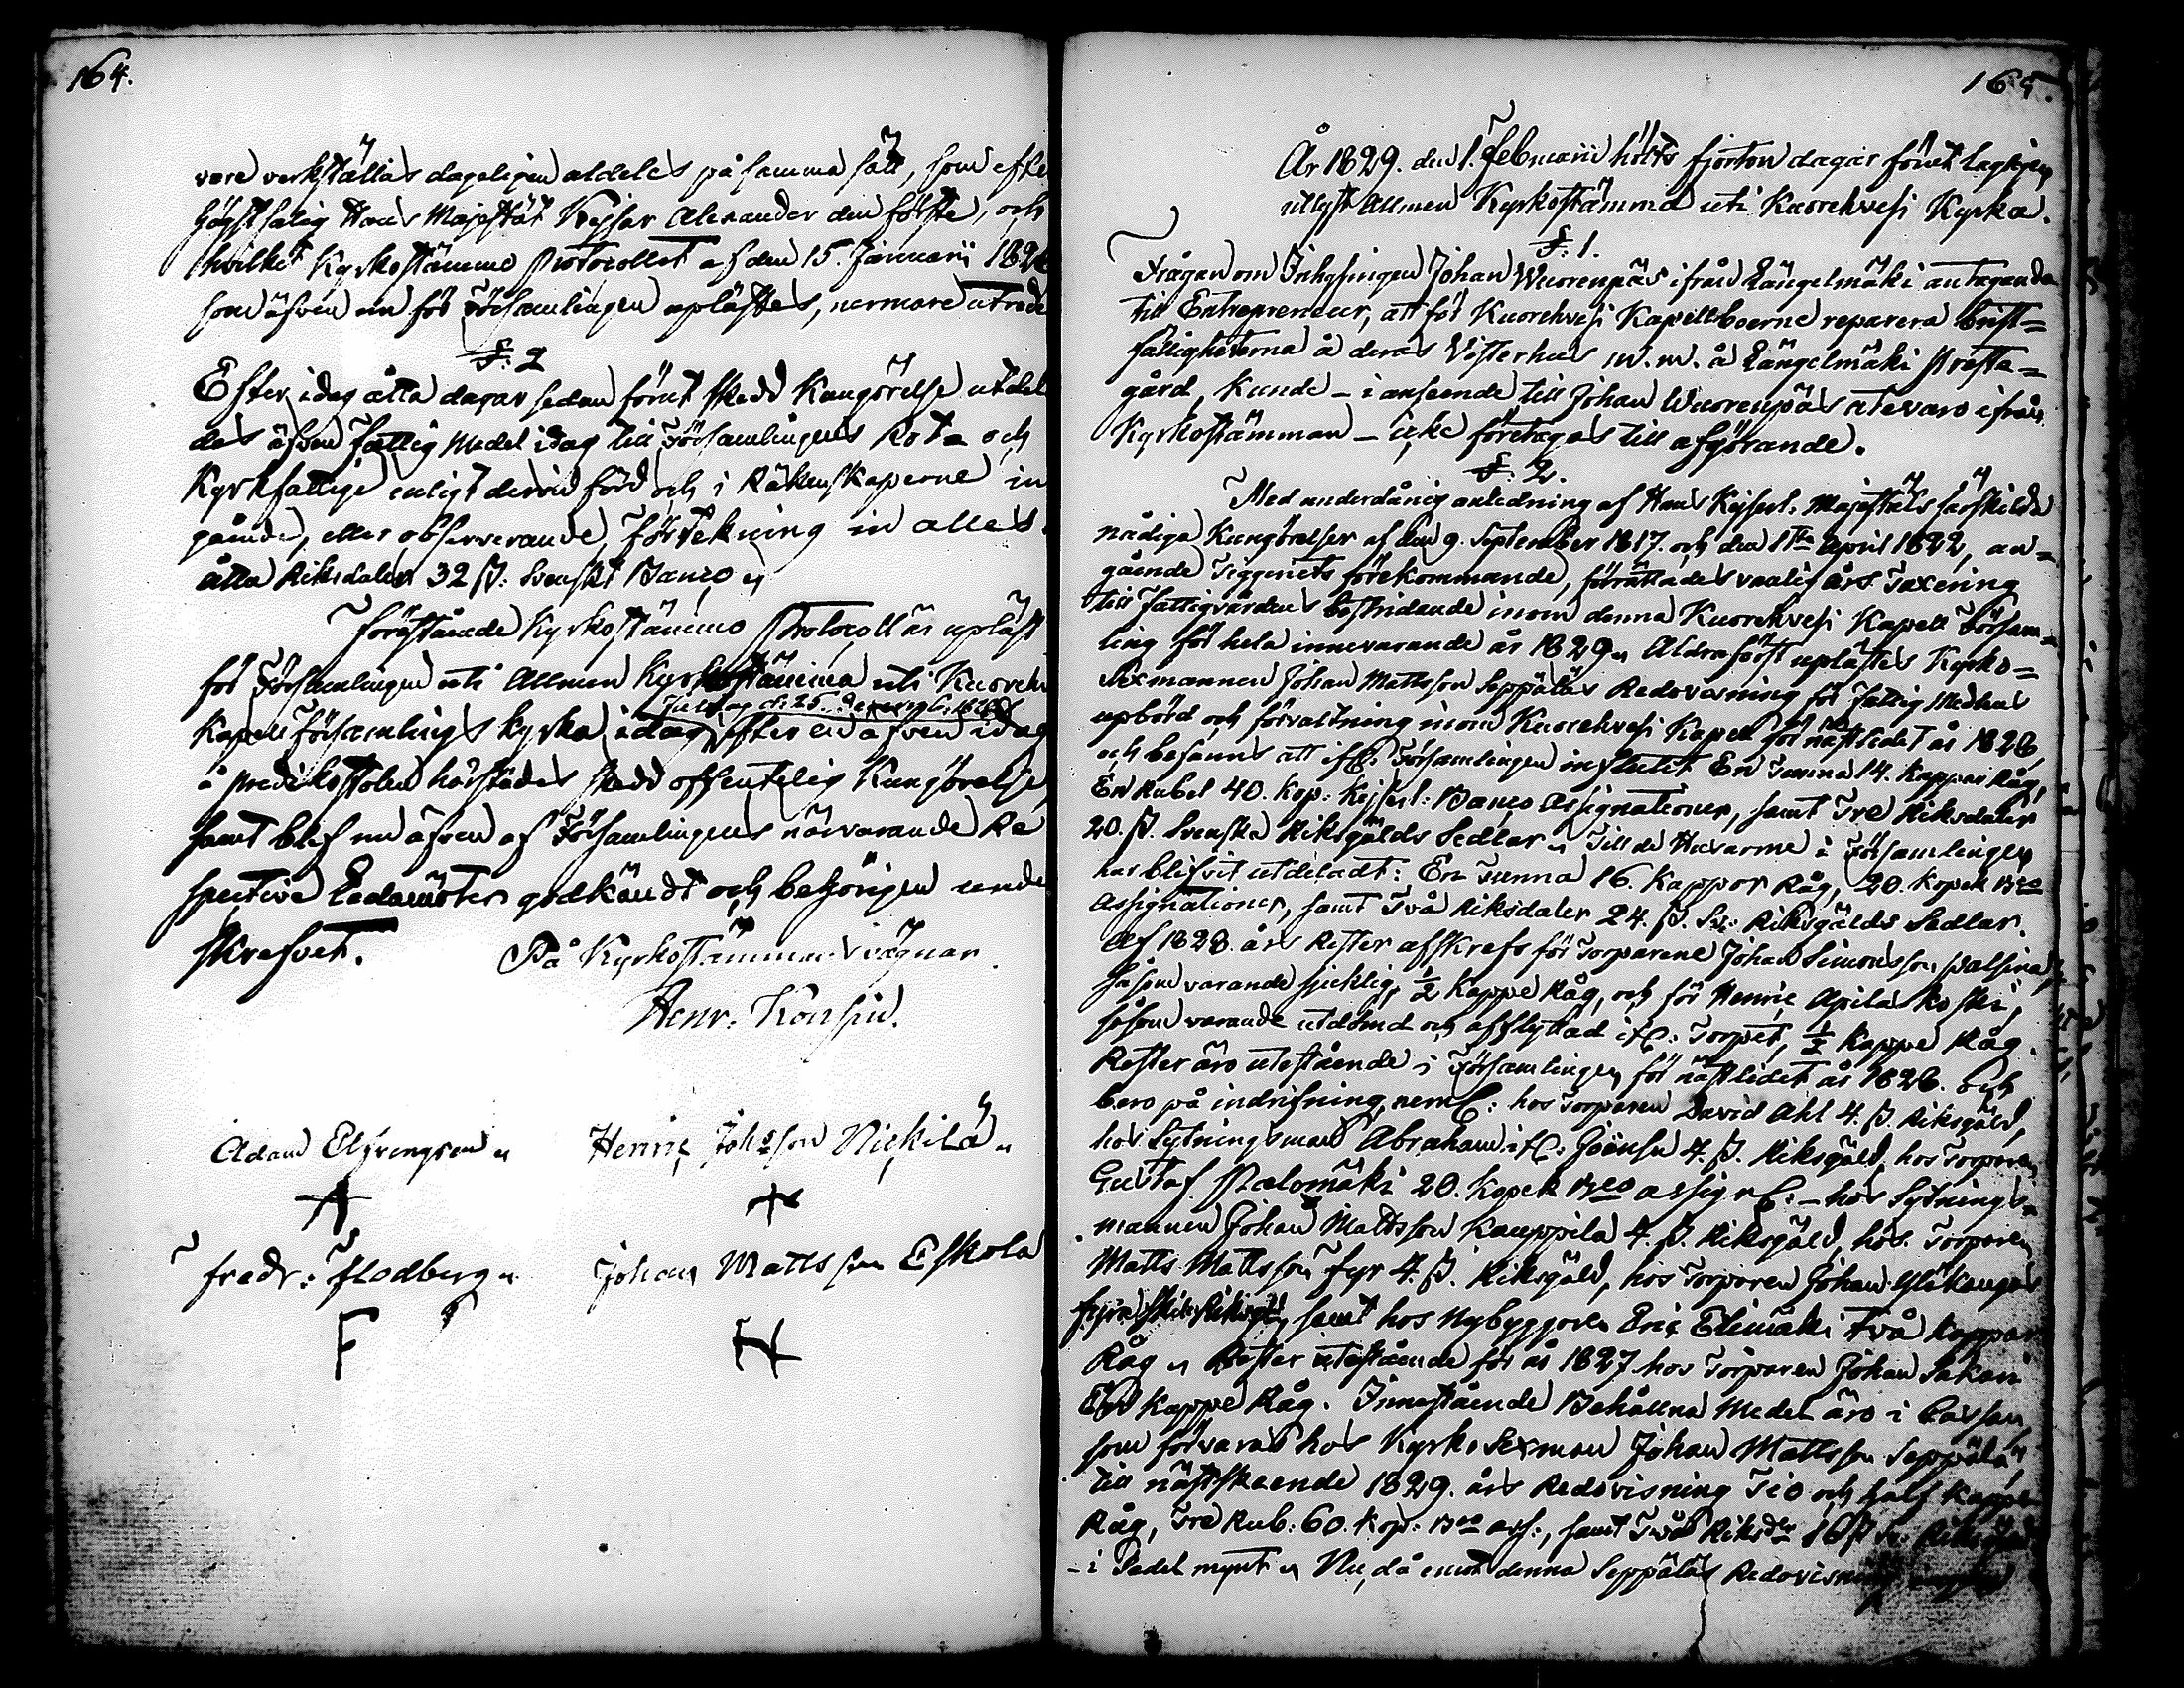 164.
vare verkställas dageligen aldeles på samma sätt, som efte
Högstsalig Hans Majestät Kejsar Alexander den förste, och
hvilket Kyrkostämmo Protocollet af den 15. Januarii 182
som äfven nu för Församlingen uplästes, nermare utrede
§: 2
Efter idag åtta dagar sedan förut skedd Kungörelse utdel
des äfven Fattig Medel idag till Församlingens Rota och
Kyrkfattige enligt deröfver förd och i Räkenskaperne in
gående, eller observerande Förtekning in alles
åtta Riksdaler 32 ß: Svenskt Banco
Förestående Kyrkostämmo Protocoll är upläst
för Församlingen uti Allmen Kyrkostämma uti Kuoreh
Juldag d: 25. Decemb: 1828
Kapells Församlings kyrka idag efter en äfven idag
å Predikostolen härstädes skedd offentelig Kungörelse,
samt blef nu äfven af Församlingens närvarande Re
spective Ledamöter godkändt och behörigen unde
skrefvet.
På Kyrkostämmans vägnar
Henr: Konsin.
Adam Elfvengren
Henric Johsson Nickilä
Fredr: Flodberg
Johan Mattsson Eskola
F
165.
År 1829. den 1. Februarii hölts fjorton dagar förut lagligen
utlyst Allmen Kyrkostämma uti Kuorehvesi Kyrka.
§: 1.
Frågan om Inhysingen Johan Wuorenpääs ifrån Längelmäki antagande
till Entrepreneur, att för Kuorehvesi Kapellboerne reparera brist=
fälligheterna å deras Visterhus m.m. å Längelmäki Presta=
gård, kunde - i anseende till Johan Wuorenpääs utevaro ifrån
Kyrkostämman - icke företagas till afgörande.
§: 2.
Med underdånig anledning af Hans Kejserl. Majestäts särskilda
nådiga Kungörelser af den 9. September 1817. och den 1sta April 1822, an=
gående Tiggeriets förekommande, förrättades vanlig års Taxering
till Fattigvårdens bestridande inom denna Kuorehvesi Kapell Försam=
ling för hela innevarande år 1829 Aldraförst uplästes Kyrko=
Sexmannen Johan Mattsson Seppäläs Redovisning för Fattig Medlens
upbörd och förvaltning inom Kuorehvesi Kapell för nästledet år 1828,
och befanns att i sd: Församlingen influtit En Tunna 14. Kappar Råg,
En Rubel 40. Kop: Kejserl: Banco Assignationer, samt Tre Riksdaler
20. ß. Svenska Riksgälds Sedlar Till de Husarme i Församlingen
har blifvit utdeladt: En Tunna 16. Kappor Råg, 20. Kopek Bco
Assignationer, samt Två Riksdaler 24. ß. Sv: Riksgälds Sedlar.
Af 1828. års Rester afskrefs för Torparene Johan Simonsson
såsom varande sjuklig, 1/2 Kappe Råg, och för Henric Apilakoski,
såsom varande utdömd och afflyttad i fl: Torpet, 1/2 Kappe Råg.
Rester äro utestående i Församlingen för nästledet år 1828. och
bero på indrifning, neml: hos Torparen David Ahl 4. ß. Riksgäld,
hos Sytningsman Abraham ifl: 4. ß. Riksgäld, hos Torparen
Gustaf Palomäki 20. Kopek Bco assign: - hos Sytnings=
mannen Johan Mattsson Kauppila 4. ß. Riksgäld, hos Torparen
Matts Mattsson Fyr 4. ß. Riksgäld, hos Torparen Johan Yläkangas
fyra Skill: Riksg: samt hos Nybyggaren Eric Elimäki två Kappar
Råg Rester utestående för år 1827 hos Torparen Johan Sakari
En Kappe Råg. Innestående Behållna Medel äro i Cassan
som förvaras hos Kyrko Sexman Johan Mattsson Seppälä
till nästskeende 1829. års Redovisning Tio och half Kappe
Råg, Tre Rub: 60. Kop: Bco ass:, samt Två Riksdr 16 ß Sv: Riksgäld
- i Sedel mynt Nu, då emot denna Seppäläs Redovisning